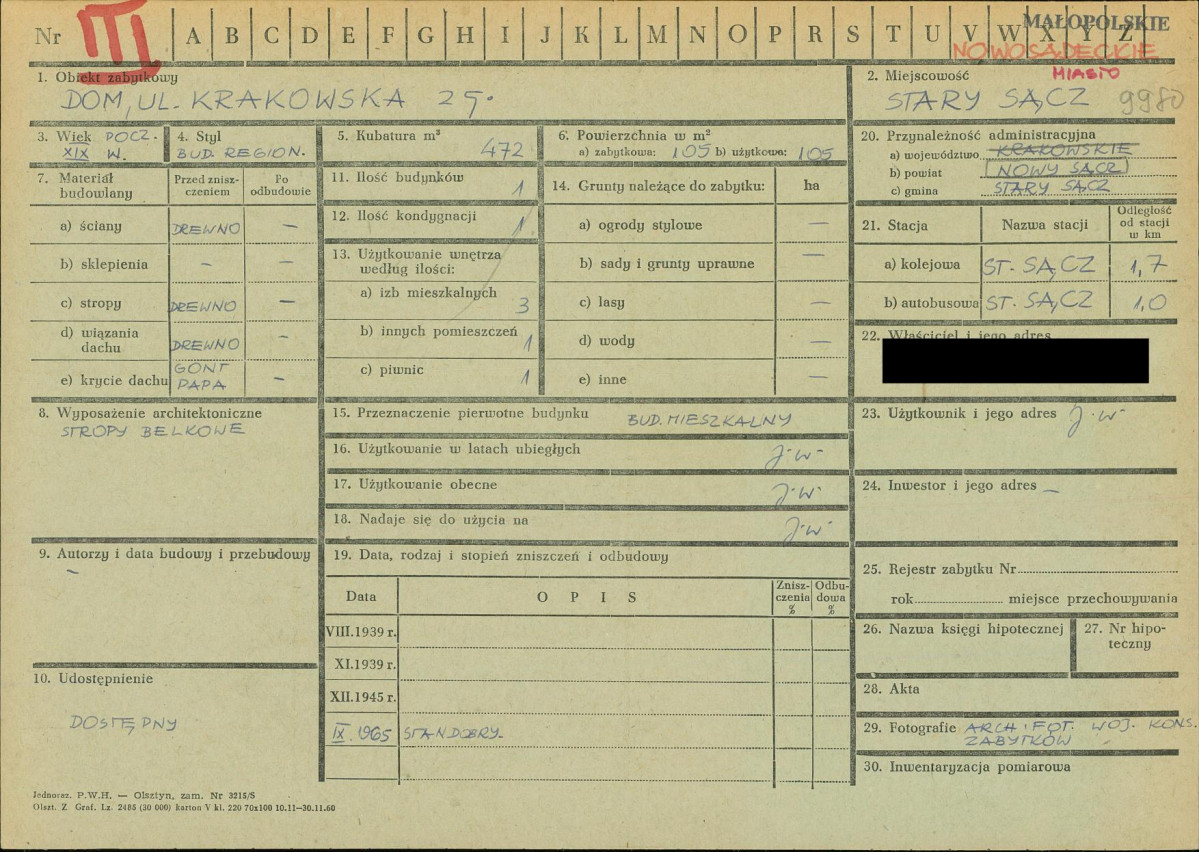 Nr III A B C D E F G H I J K L M N O P R S T U V W X Y Z
MAŁOPOLSKIE
NOWOSĄDECKIE
MIASTO
1. Obiekt zabytkowy
DOM, UL. KRAKOWSKA 25.
2. Miejscowość
STARY SĄCZ 9980
3. Wiek POCZ.
XIX W.
4. Styl
BUD. REGION.
5. Kubatura m³
472
6. Powierzchnia w m²
a) zabytkowa: 105 b) użytkowa: 105
20. Przynależność administracyjna
a) województwo KRAKOWSKIE
b) powiat NOWY SĄCZ
c) gmina STARY SĄCZ
7. Materiał
budowlany
Przed znisz-
czeniem
Po
odbudowie
a) ściany DREWNO —
b) sklepienia – –
c) stropy DREWNO —
d) wiązania
dachu DREWNO –
e) krycie dachu GONT
PAPA –
11. Ilość budynków 1
12. Ilość kondygnacji 1
13. Użytkowanie wnętrza
według ilości:
a) izb mieszkalnych 3
b) innych pomieszczeń 1
c) piwnic 1
14. Grunty należące do zabytku: ha
a) ogrody stylowe —
b) sady i grunty uprawne —
c) lasy —
d) wody —
e) inne —
21. Stacja Nazwa stacji Odległość
od stacji
w km
a) kolejowa ST. SĄCZ 1,7
b) autobusowa ST. SĄCZ 1,0
22. Właściciel i jego adres
8. Wyposażenie architektoniczne
STROPY BELKOWE
15. Przeznaczenie pierwotne budynku BUD. MIESZKALNY
16. Użytkowanie w latach ubiegłych j.w.
17. Użytkowanie obecne j.w.
18. Nadaje się do użycia na j.w.
23. Użytkownik i jego adres j.w.
24. Inwestor i jego adres —
9. Autorzy i data budowy i przebudowy
–
19. Data, rodzaj i stopień zniszczeń i odbudowy
Data OPIS Znisz-
czenia
%
Odbu-
dowa
%
VIII.1939 r.
XI.1939 r.
XII.1945 r.
IX.1965 STAN DOBRY.
25. Rejestr zabytku Nr
rok miejsce przechowywania
26. Nazwa księgi hipotecznej
27. Nr hipo-
teczny
10. Udostępnienie
DOSTĘPNY
28. Akta
29. Fotografie ARCH. FOT. WOJ. KONS.
ZABYTKÓW
30. Inwentaryzacja pomiarowa
Jednoraz. P.W.H. — Olsztyn, zam. Nr 3215/S
Olszt. Z. Graf. Lz. 2485 (30 000) karton V kl. 220 70x100 10.11—30.11.60